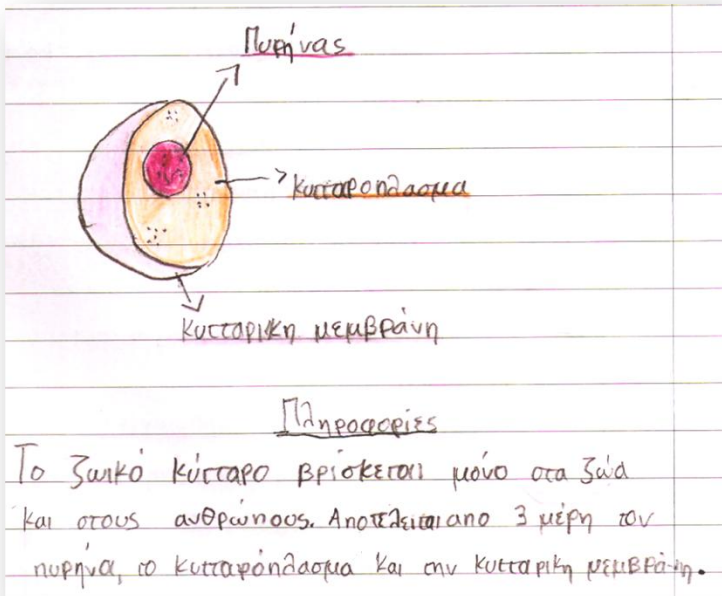 Πυρήνας
κυτταροπλασμα
κυτταρικη μεμβράνη
Πληροφορίες
Το ζωικό κύτταρο βρίσκεται μόνο στα ζώα
και στους ανθρώπους. Αποτελείται απο 3 μέρη τον
πυρήνα, το κυτταρόπλασμα και την κυτταρικη μεμβράνη.